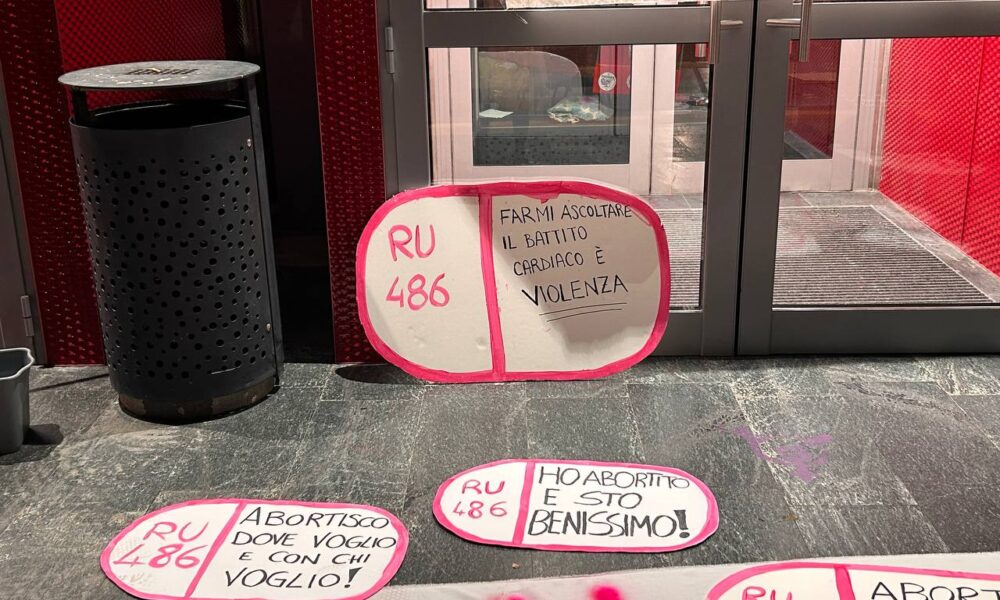 RU
486
FARMI ASCOLTARE
IL BATTITO
CARDIACO È
VIOLENZA
RU
486
HO ABORTITO
E STO
BENISSIMO!
RU
486
ABORTISCO
DOVE VOGLIO
E CON CHI
VOGLIO!
RU